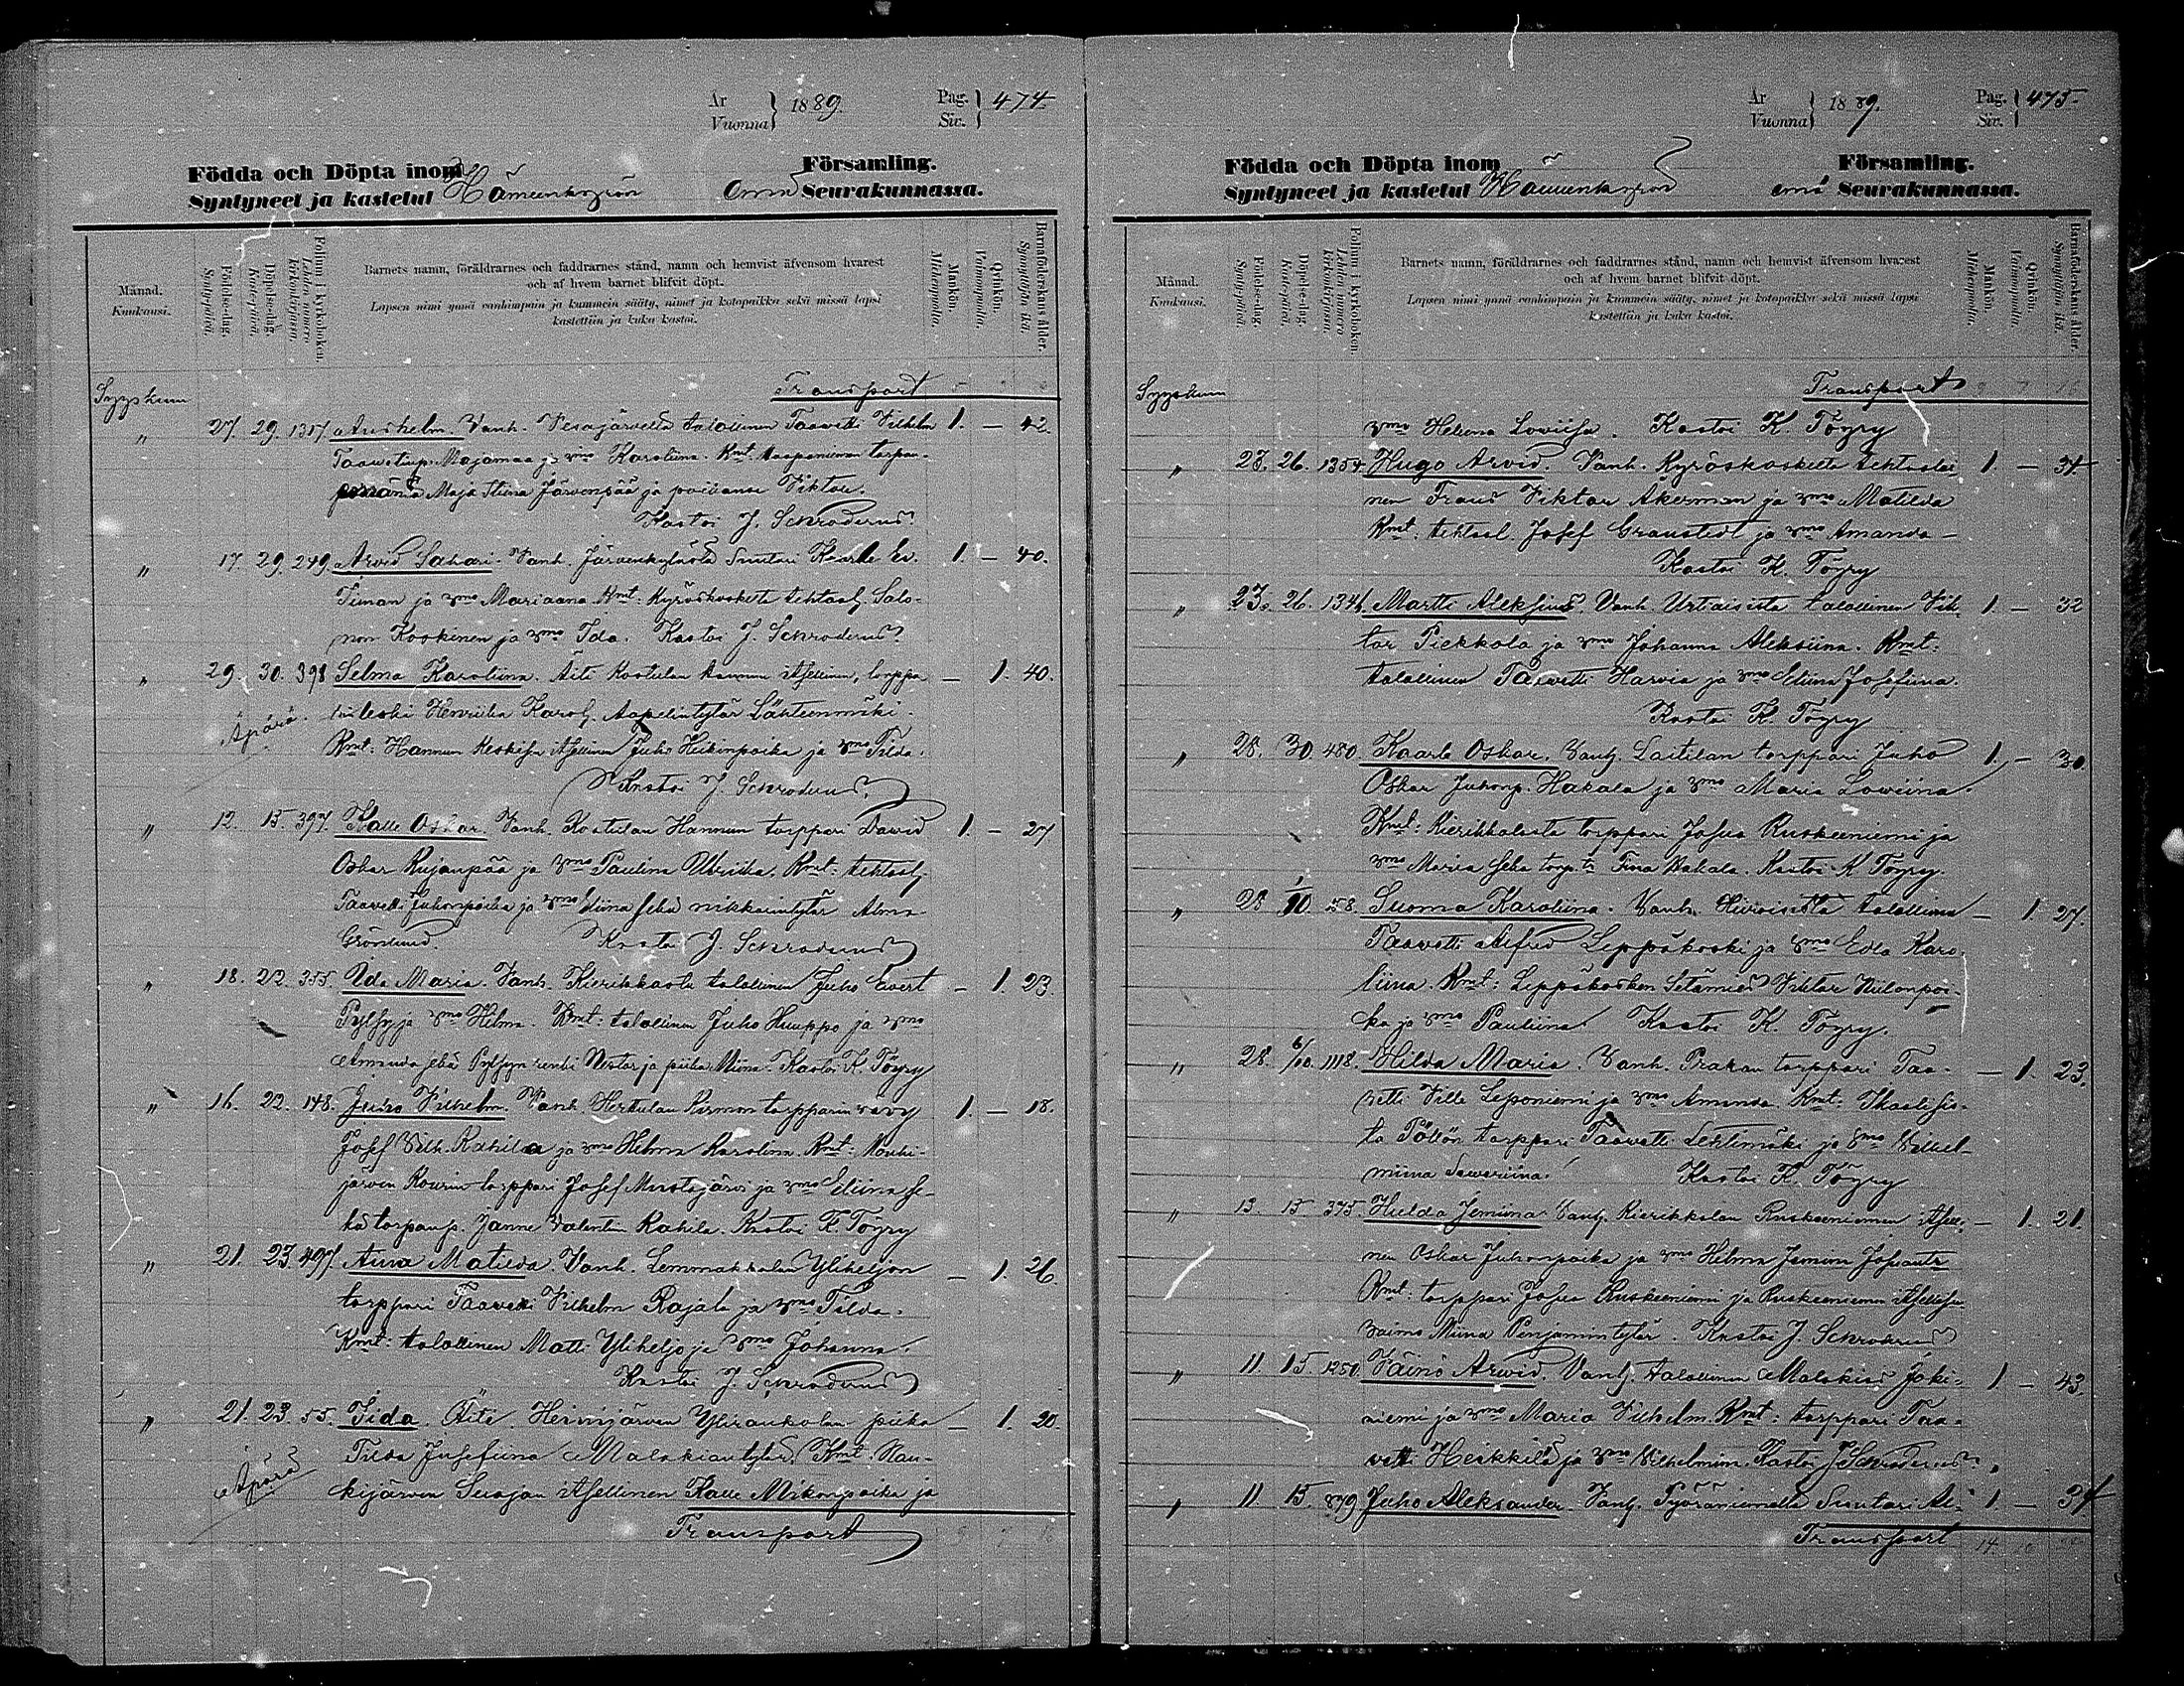 År Vuonna } 1889. Pag. Siv. } 474
Födda och Döpta inom Församling.
Syntyneet ja kastetut Hämeenkyrön emä Seurakunnassa.
Månad. Kuukausi.
Födelse-dag. Syntypäivä.
Döpelse-dag. Kastepäivä.
Folium i kyrkoboken. Lehden numero kirkonkirjassa.
Barnets namn, föräldrarnes och faddrarnes stånd, namn och hemvist äfvensom hvarest
och af hvem barnet blifvit döpt.
Lapsen nimi ynnä vanhimpain ja kummein sääty, nimet ja kotopaikka sekä missä lapsi
kastettiin ja kuka kastoi.
Mankön. Miehenpuolia.
Qvinkön. Vaimonpuolia.
Barnaföderskans ålder. Synnyttäjän ikä.
Transport
Syyskuu
" 27. 29. 1317 Anshelm. Vanh. Vesajärveltä talollinen Taavetti Vilhelm 1. — 42.
Taavetinp. Majamaa ja vmo Karoliina. Kmt. Haapaniemen torpan-
emäntä Maja Stiina Järvenpää ja poikansa Viktor.
Kastoi J. Schroderus.
" 17. 29. 249. Arvid Sakari. Vanh. Järvenkylästä Suutari Kaarle Ev. 1. — 40.
Timan ja vmo Mariaana. Kmt: Kyröskoskelta tehtaal. Salo-
mon Koskinen ja vmo Ida. Kastoi J. Schroderus.
" 29. 30. 398 Selma Karoliina. Äiti Kostulan Hannun itsellinen, torppa — 1. 40.
Äpärä. rin leski Henriika Karol. Aapelintytär Lähteenmäki.
Kmt: Hannun Keskisen itsellinen Juho Heikinpoika ja vmo Tilda.
Kastoi J. Schroderus.
" 12. 15. 397. Kalle Oskar. Vanh. Kostulan Hannun torppari David 1. — 27
Oskar Kujanpää ja vmo Paulina Ulriika. Kmt: tehtaal.
Taavetti Juhonpoika ja vmo Eliina sekä nikkarintytär Alma
Grönlund. Kastoi J. Schroderus
" 18. 22. 355. Ida Maria. Vanh. Kierikkalan talollinen Juho Evert — 1. 23.
Pylsy ja vmo Hilma. Kmt: talollinen Juho Huuppo ja vmo
Amanda sekä Pylsyn renki Nestor ja piika Miina. Kastoi K. Töyry
" 16. 22. 148. Juho Vilhelm. Vanh. Hertulan Kirmon torpparin vävy 1. — 18.
Josef Vilh. Rahila ja vmo Hilma Karolina. Kmt: Kouhi-
järven Kourin torppari Josef Mustajärvi ja vmo Eliina se-
kä torpanp. Janne Valentin Rahila. Kastoi K. Töyry
" 21. 23. 497. Aina Matilda. Vanh. Lemmakkalan Yliheljon — 1. 26
torppari Taavetti Vilhelm Rajala ja vmo Tilda.
Kmt: talollinen Matti Yliheljo ja vmo Johanna.
Kastoi J. Schroderus
" 21. 23. 55. Iida. Äiti. Heinijärven Ylirankolan piika — 1. 20.
Äpärä Tilda Josefiina Malakiantytär. Kmt. Hau-
kijärven Seisojan itsellinen Kalle Mikonpoika ja
Transport
År Vuonna } 1889. Pag. Siv. } 475
Födda och Döpta inom Församling.
Syntyneet ja kastetut Hämeenkyrön emä Seurakunnassa.
Månad. Kuukausi.
Födelse-dag. Syntypäivä.
Döpelse-dag. Kastepäivä.
Folium i kyrkoboken. Lehden numero kirkonkirjassa.
Barnets namn, föräldrarnes och faddrarnes stånd, namn och hemvist äfvensom hvarest
och af hvem barnet blifvit döpt.
Lapsen nimi ynnä vanhimpain ja kummein sääty, nimet ja kotopaikka sekä missä lapsi
kastettiin ja kuka kastoi.
Mankön. Miehenpuolia.
Qvinkön. Vaimonpuolia.
Barnaföderskans ålder. Synnyttäjän ikä.
Transport
Syyskuu
vmo Helena Loviisa. Kastoi K. Töyry
" 23. 26. 1354 Hugo Arvid. Vanh. Kyröskoskelta tehtaalai 1. — 34
nen Frans Viktor Akerman ja vmo Matilda
Kmt: tehtaal. Josef Granstedt ja vmo Amanda —
Kastoi K. Töyry
" 23. 26. 1346. Martti Aleksius. Vanh. Urtaisista talollinen Vik- 1. — 32
tor Piekkola ja vmo Johanna Aleksiina. Kmt:
talollinen Taavetti Harvia ja vmo Eliina Josefiina.
Kastoi K. Töyry
" 28. 30. 480 Kaarle Oskar. Vanh. Laitilan torppari Juho 1. — 30.
Oskar Juhonp. Hakala ja vmo Maria Loviina.
Kmt: Kierikkalasta torppari Josua Ruskeeniemi ja
vmo Maria sekä torp.tr Fina Hakala. Kastoi K. Töyry.
" 28 1/10. 58. Suoma Karoliina. Vanh. talollinen — 1. 27.
Taavetti Alfred Leppäkoski ja vmo Edla Karo-
liina. Kmt: Leppäkosken Setämies Viktor Niilonpoi-
ka ja vmo Pauliina. Kastoi K. Töyry.
" 28. 6/10. 1118. Hilda Maria. Vanh. Prakan torppari Taa- — 1. 23.
vetti Ville Leponiemi ja vmo Amanda. Kmt: Ikaalisis-
ta Pöllön torppari Taavetti Lehtimäki ja vmo Vilhel-
miina Saveriina. Kastoi K. Töyry
" 13. 15 375. Hulda Jemina. Vanh. Kierikkalan Ruskeeniemen itsell. — 1. 21.
nen Oskar Juhonpoika ja vmo Hilma Jemina Josuantr
Kmt: torppari Josua Ruskeeniemi ja Ruskeeniemen itsellisen
vaimo Miina Penjamintytär. Kastoi J. Schroderus
" 11. 15. 1250. Väinö Arvid. Vanh. talollinen Malakias Joki- 1 — 43.
niemi ja vmo Maria Vilhelm. Kmt: torppari Taa-
vetti Heikkilä ja vmo Vilhelmiina. Kastoi J. Schroderus.
" 11. 15. 879 Juho Aleksander. Vanh. Pyöräniemeltä Suutari Al- 1 — 34
Transport 14.